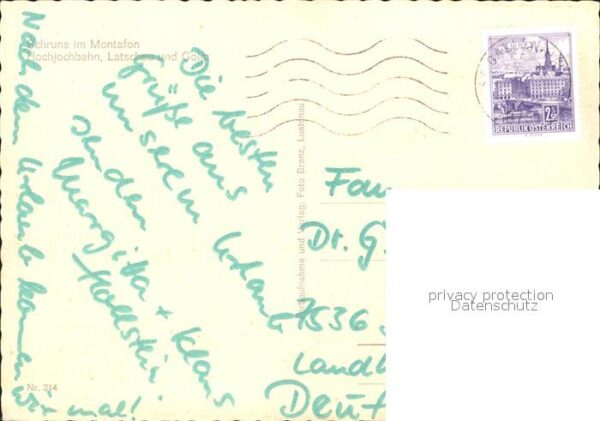 Schruns im Montafon
Hochjochbahn, Latschau und Golm
Die besten
Grüße aus
unserem Urlaub
senden
Margitta + Klaus
Hollstein
Nach dem Urlaub kommen
wir mal!
Nr. 314
Aufnahme und Verlag: Foto Branz, Lustenau
2.50
REPUBLIK ÖSTERREICH
Fam
Dr. G
7536
Landh
Deut
privacy protection
Datenschutz